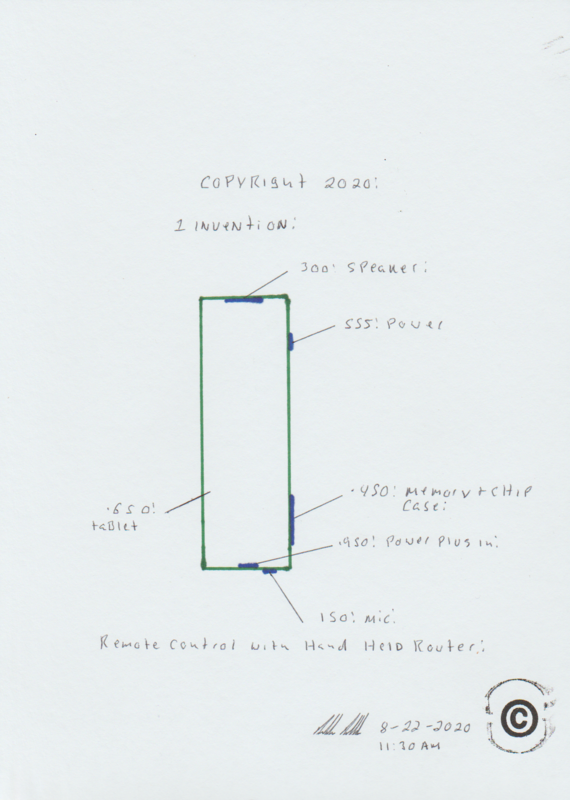 COPYRIGHT 2020:
1 INVENTION:
300: SPEAKER:
555: POWER
.450: MEMORY + CHIP
CASE:
.650:
TABLET
.950: POWER PLUG IN:
150: MIC:
Remote Control with Hand HelD Router:
8-22-2020
11:30 AM
©